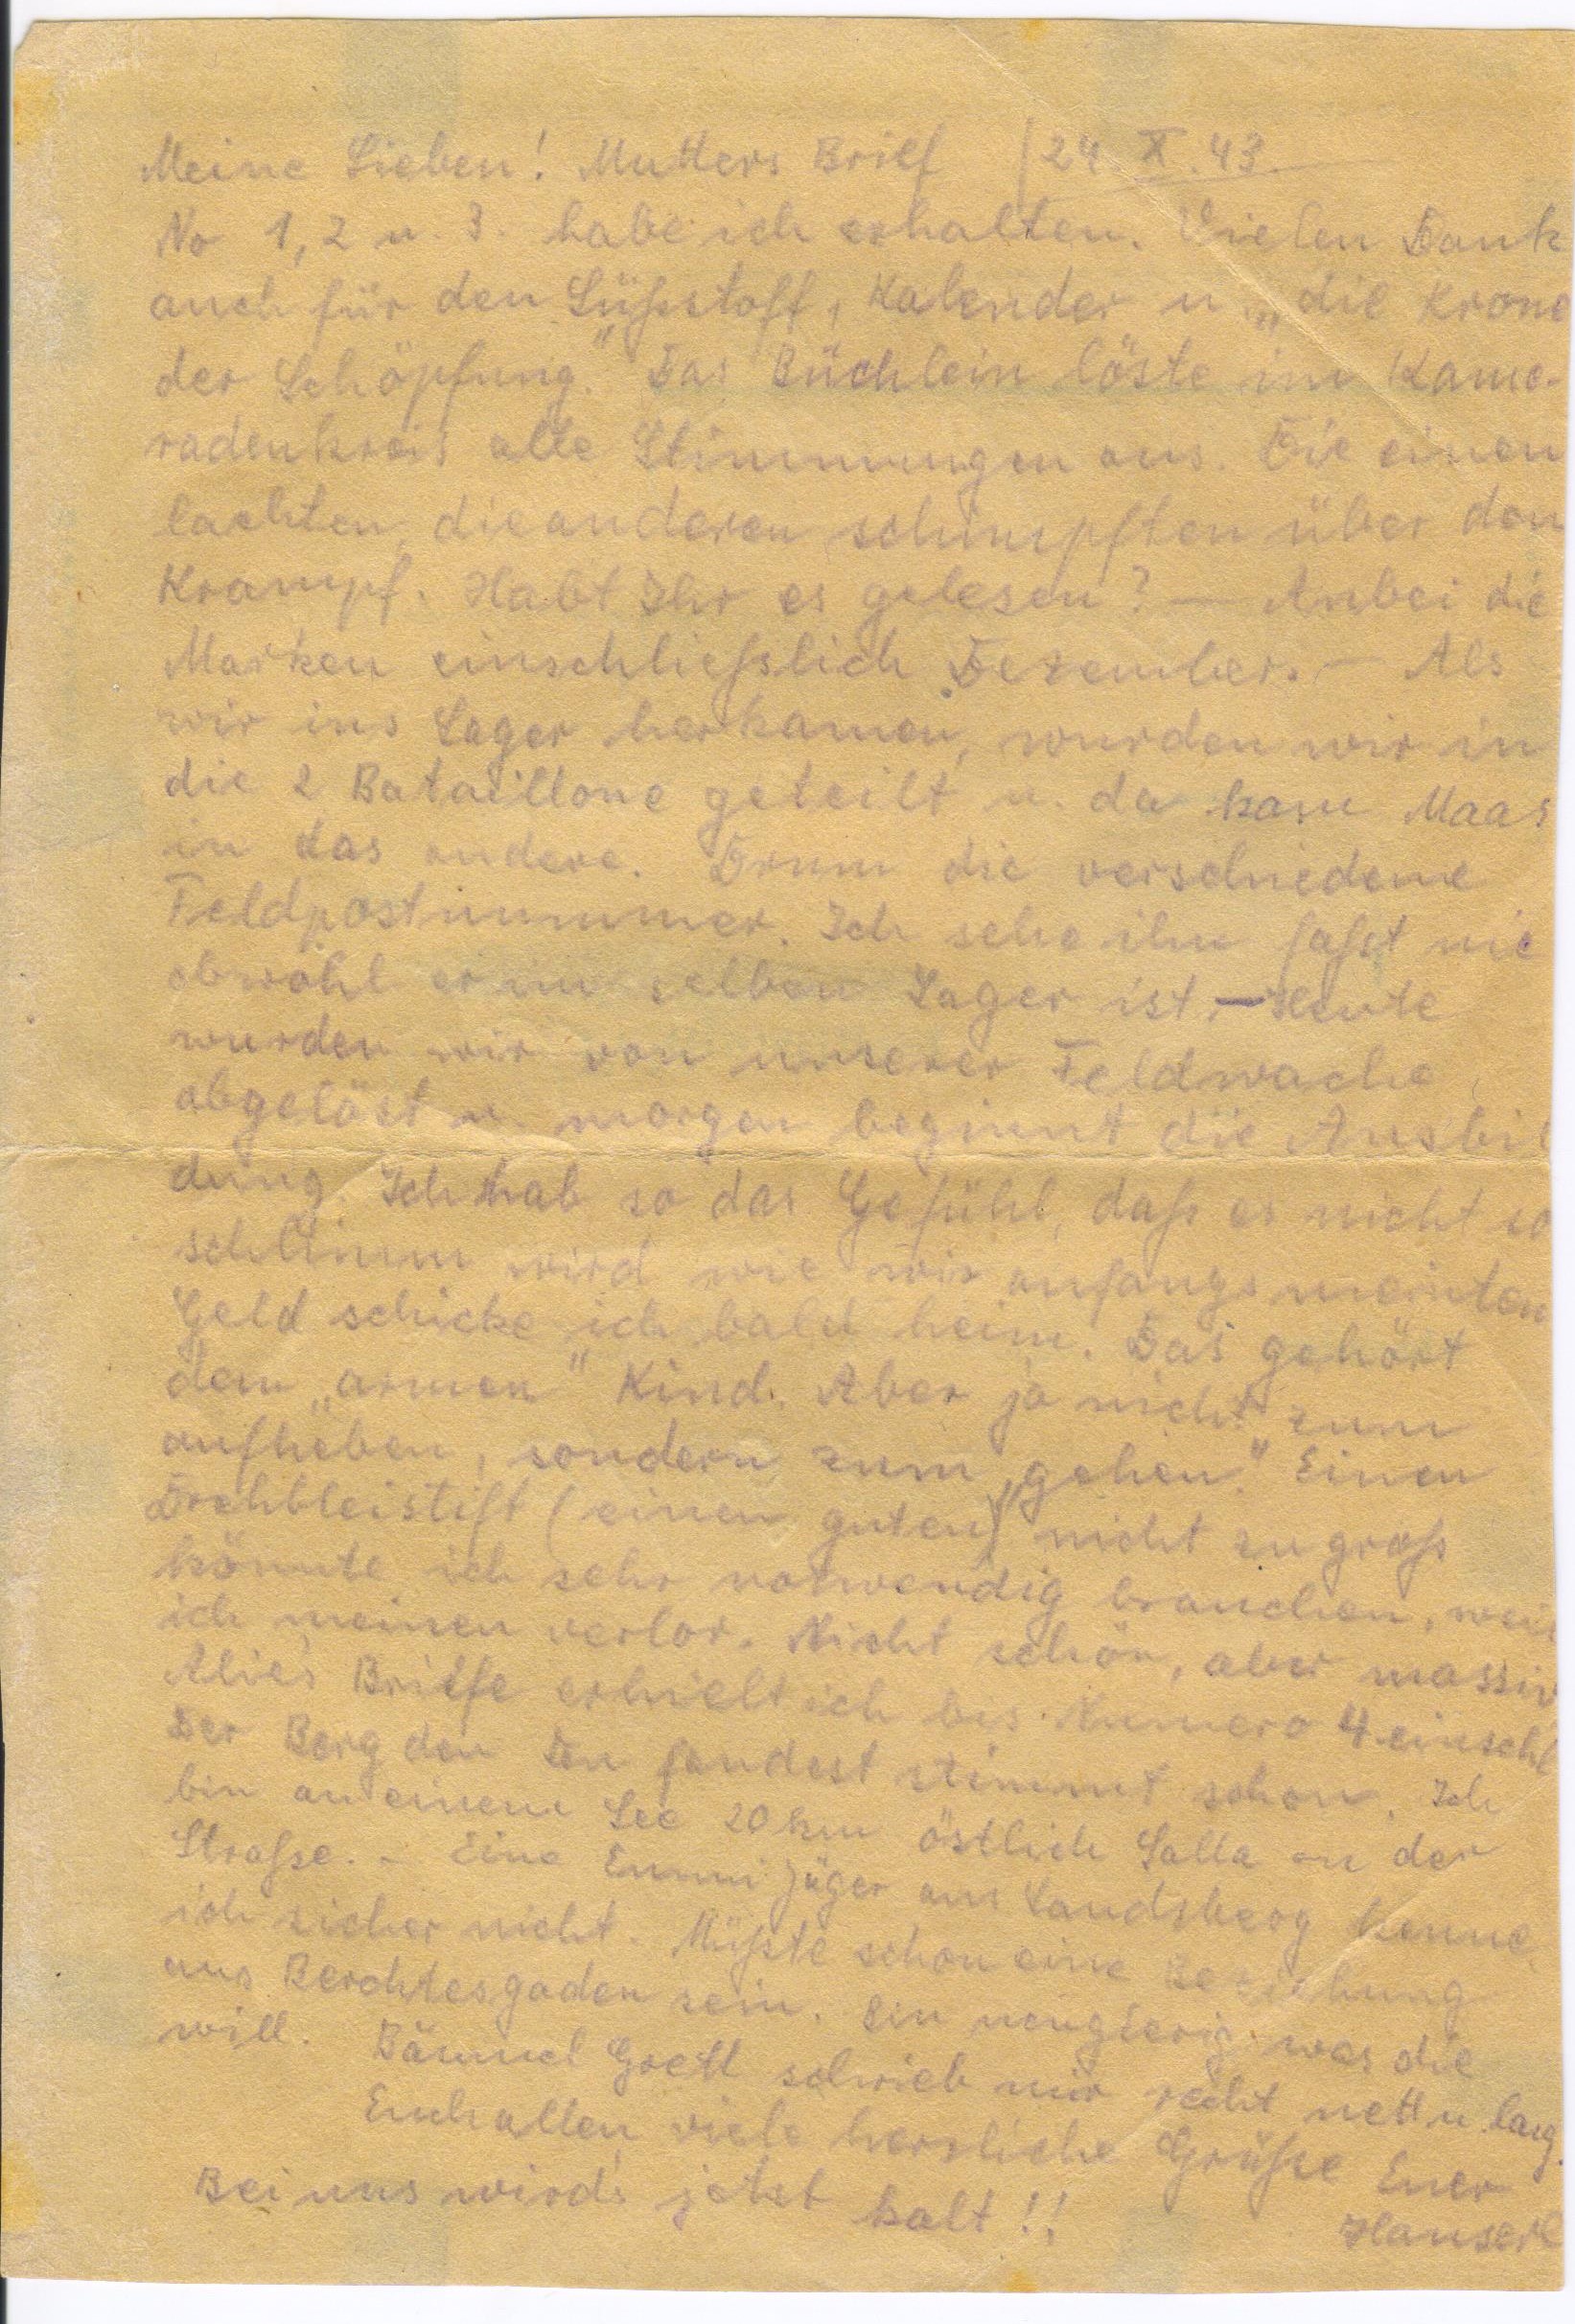 Meine Lieben! Mutters Brief 24. X. 43.
No 1, 2 u. 3. habe ich erhalten. Vielen Dank
auch für den Süßstoff, Kalender u. „die Krone
der Schöpfung." Das Büchlein löste im Kame-
radenkreis alle Stimmungen aus. Die einen
lachten, die anderen schimpften über den
Krampf. Habt Ihr es gelesen? — Anbei die
Marken einschliesslich Dezember. — Als
wir ins Lager herkamen, wurden wir in
die 2 Bataillone geteilt u. da kam Maas
in das andere. Drum die verschiedene
Feldpostnummer. Ich sehe ihn faßt nie
obwohl er im selben Lager ist. — Heute
wurden wir von unserer Feldwache
abgelöst u. morgen beginnt die Ausbil
dung. Ich hab so das Gefühl, daß es nicht so
schlimm wird wie wir anfangs meinten
Geld schicke ich bald heim. Das gehört
dem „armen" Kind. Aber ja nicht zum
aufheben, sondern zum „gehen." Einen
Drehbleistift (einen guten) nicht zu groß
könnte ich sehr notwendig brauchen, weil
ich meinen verlor. Nicht schön, aber massiv
Alie's Briefe erhielt ich bis Numero 4 einschl
Der Berg den Du fandest stimmt schon. Ich
bin an einem See 20 km östlich Salla an der
Straße. - Eine Emmi Jäger aus Landsberg kenne
ich sicher nicht. Müßte schon eine Beziehung
aus Berchtesgaden sein. Bin neugierig was die
will. Bäumel Gretl schrieb mir recht nett u. lang.
Euch allen viele herzliche Grüße Euer
Bei uns wird's jetzt kalt!! Hanserl